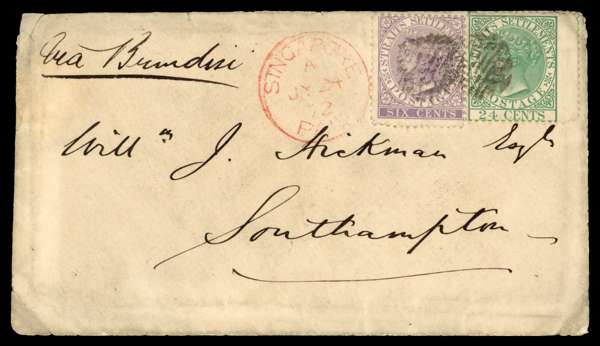 via Brindisi
SINGAPORE
STRAITS SETTLEMENTS
POSTAGE
SIX CENTS
SETTLEMENTS
POSTAGE
24 CENTS
Will m J. Hickman Esqr
Southampton